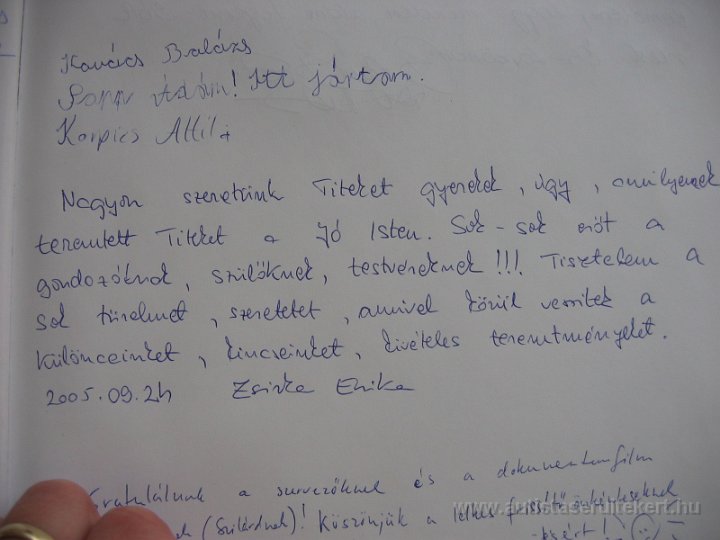 Kovács Balázs
Papp Ádám! Itt jártam.
Korpics Attila
Nagyon szeretünk Titeket gyerekek, úgy, amilyennek
teremtett Titeket a Jó Isten. Sok-sok erőt a
gondozóknak, szülőknek, testvéreknek!!! Tisztelem a
sok türelmet, szeretetet, amivel körül veszitek a
különceinket, kincseinket, kivételes teremtményeket.
2005.09.24 Zsirka Erika
Gratulálunk a szervezőknek és a dokumentumfilm
(Szilárdnak)! Köszönjük a lelkes frissítő önkénteseknek
www.autistasertitekert.hu